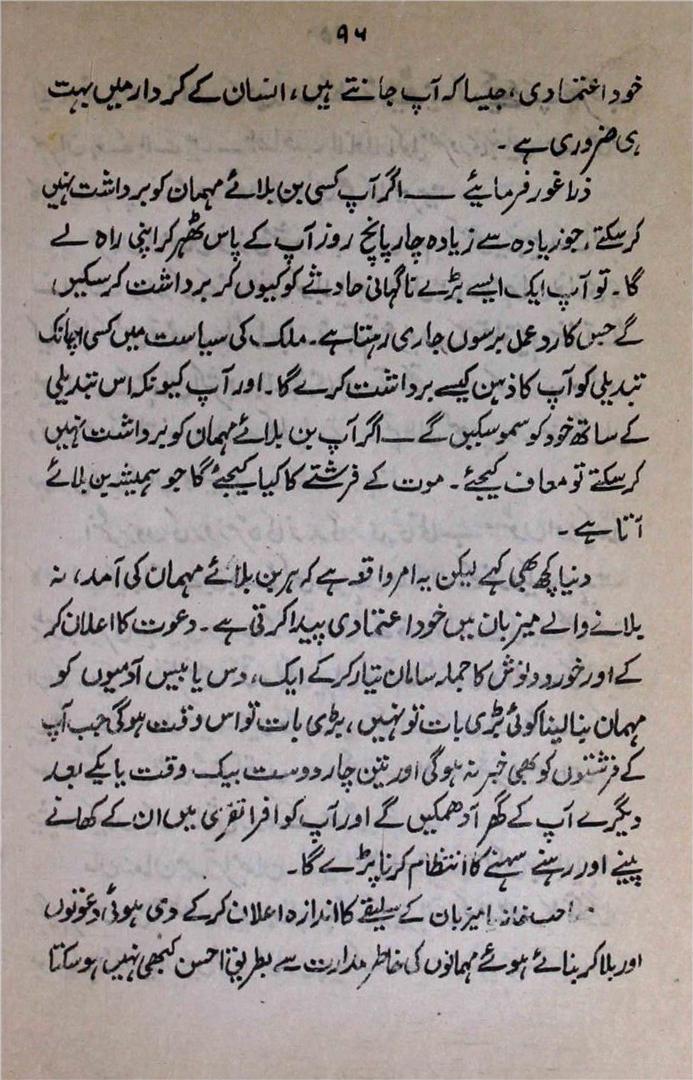 ۹۶
خود اعتمادی، جیسا کہ آپ جانتے ہیں، انسان کے کردار میں بہت
ہی ضروری ہے ۔
ذرا غور فرمایئے ــــ اگر آپ کسی بن بلائے مہمان کو برداشت نہیں
کر سکتے، جو زیادہ سے زیادہ چار پانچ روز آپ کے پاس ٹھہر کر اپنی راہ لے
گا۔ تو آپ ایک ایسے بڑے ناگہانی حادثے کو کیوں کر برداشت کر سکیں
گے جس کا رد عمل برسوں جاری رہتا ہے۔ ملک کی سیاست میں کسی اچانک
تبدیلی کو آپ کا ذہن کیسے برداشت کرے گا۔ اور آپ کیونکر اس تبدیلی
کے ساتھ خود کو سمو سکیں گے ــــ اگر آپ بن بلائے مہمان کو برداشت نہیں
کر سکتے تو معاف کیجئے ۔ موت کے فرشتے کا کیا کیجئے گا جو ہمیشہ بن بلائے
آتا ہے ۔
دنیا کچھ بھی کہے لیکن یہ امر واقعہ ہے کہ ہر بن بلائے مہمان کی آمد، نہ
بلانے والے میزبان میں خود اعتمادی پیدا کرتی ہے ۔ دعوت کا اعلان کر
کے اور خورد و نوش کا جملہ سامان تیار کرکے ایک، دس یا بیس آدمیوں کو
مہمان بنا لینا کوئی بڑی بات تو نہیں، بڑی بات تو اس وقت ہوگی جب آپ
کے فرشتوں کو بھی خبر نہ ہوگی اور تین چار دوست بیک وقت یا یکے بعد
دیگرے آپ کے گھر آ دھمکیں گے اور آپ کو افراتفری میں ان کے کھانے
پینے اور رہنے سہنے کا انتظام کرنا پڑے گا۔
میزبان کے سلیقے کا اندازہ اعلان کرکے دی ہوئی دعوتوں
اور بلا کر بنائے ہوئے مہمانوں کی خاطر مدارت سے بطریق احسن کبھی نہیں ہو سکتا